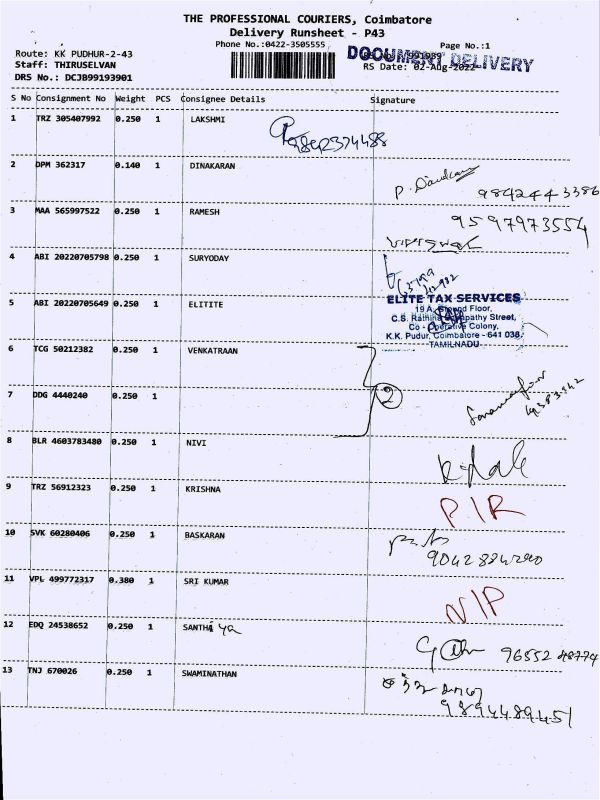 THE PROFESSIONAL COURIERS, Coimbatore
Delivery Runsheet - P43
Phone No.:0422-3505555
Page No.:1
DOCUMENT DELIVERY
Route: KK PUDHUR-2-43
Staff: THIRUSELVAN
RS Date: 02-Aug-2022
DRS No.: DCJB99193901
S No Consignment No Weight PCS Consignee Details Signature
1 TRZ 305407992 0.250 1 LAKSHMI
2 DPM 362317 0.140 1 DINAKARAN
9842443386
3 MAA 565997522 0.250 1 RAMESH
9597973554
4 ABI 20220705798 0.250 1 SURYODAY
5 ABI 20220705649 0.250 1 ELITITE
ELITE TAX SERVICES
19 A, Ground Floor,
C.S. Rathina Street,
Co - Operative Colony,
K.K. Pudur, Coimbatore - 641 038.
TAMILNADU
6 TCG 50212382 0.250 1 VENKATRAAN
7 DDG 4440240 0.250 1
2
8 BLR 4603783480 0.250 1 NIVI
9 TRZ 56912323 0.250 1 KRISHNA
P/R
10 SVK 60280406 0.250 1 BASKARAN
11 VPL 499772317 0.380 1 SRI KUMAR
N/P
12 EDQ 24538652 0.250 1 SANTHiya
96552 48774
13 TNJ 670026 0.250 1 SWAMINATHAN
9894489451